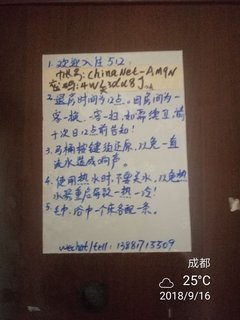 1. 欢迎入住512,
帐号: ChinaNet-Am9N
密码: 4wk3du8j
2. 退房时间为12点。因房间为一
客一换,一客一扫,如需续卫,请
于次日12点前告知!
3. 马桶按键须还原,以免一直
流水造成响声。
4. 使用热水时,不要关水,以免热
水器重启导致一热一冷!
5. 毛巾、浴巾一个床各配一条。
wechat/tell: 13881713309
成都
25°C
2018/9/16